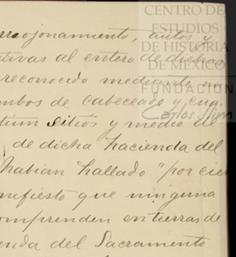 CENTRO DE
ESTUDIOS
DE HISTORIA
DE MÉXICO
FUNDACIÓN
Carlos Slim
rreojonamiento, autos y
tivas al entero de dichos
reconocido mediante un
mbos de cabeceado y cua
tium Sitios y medio de
de dicha hacienda del
habian hallado "por cier
nefiesto que ninguna
omprenden en tierras de
enda del Sacramento